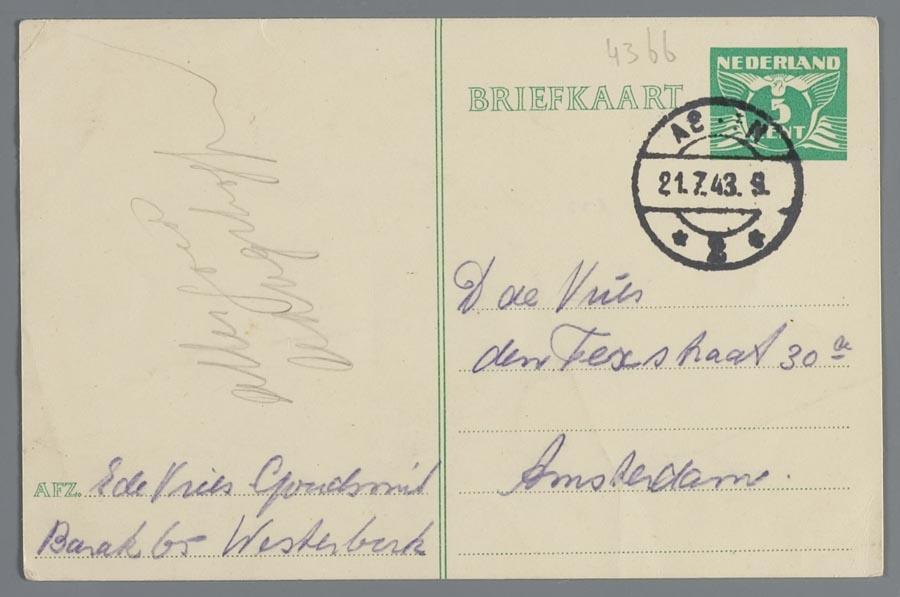 4366
NEDERLAND
5
CENT
BRIEFKAART
21.7.43. 9.
2
D de Vries
den Texstraat 30
Amsterdam.
AFZ. E de Vries Goudsmit
Barak 65 Westerbork